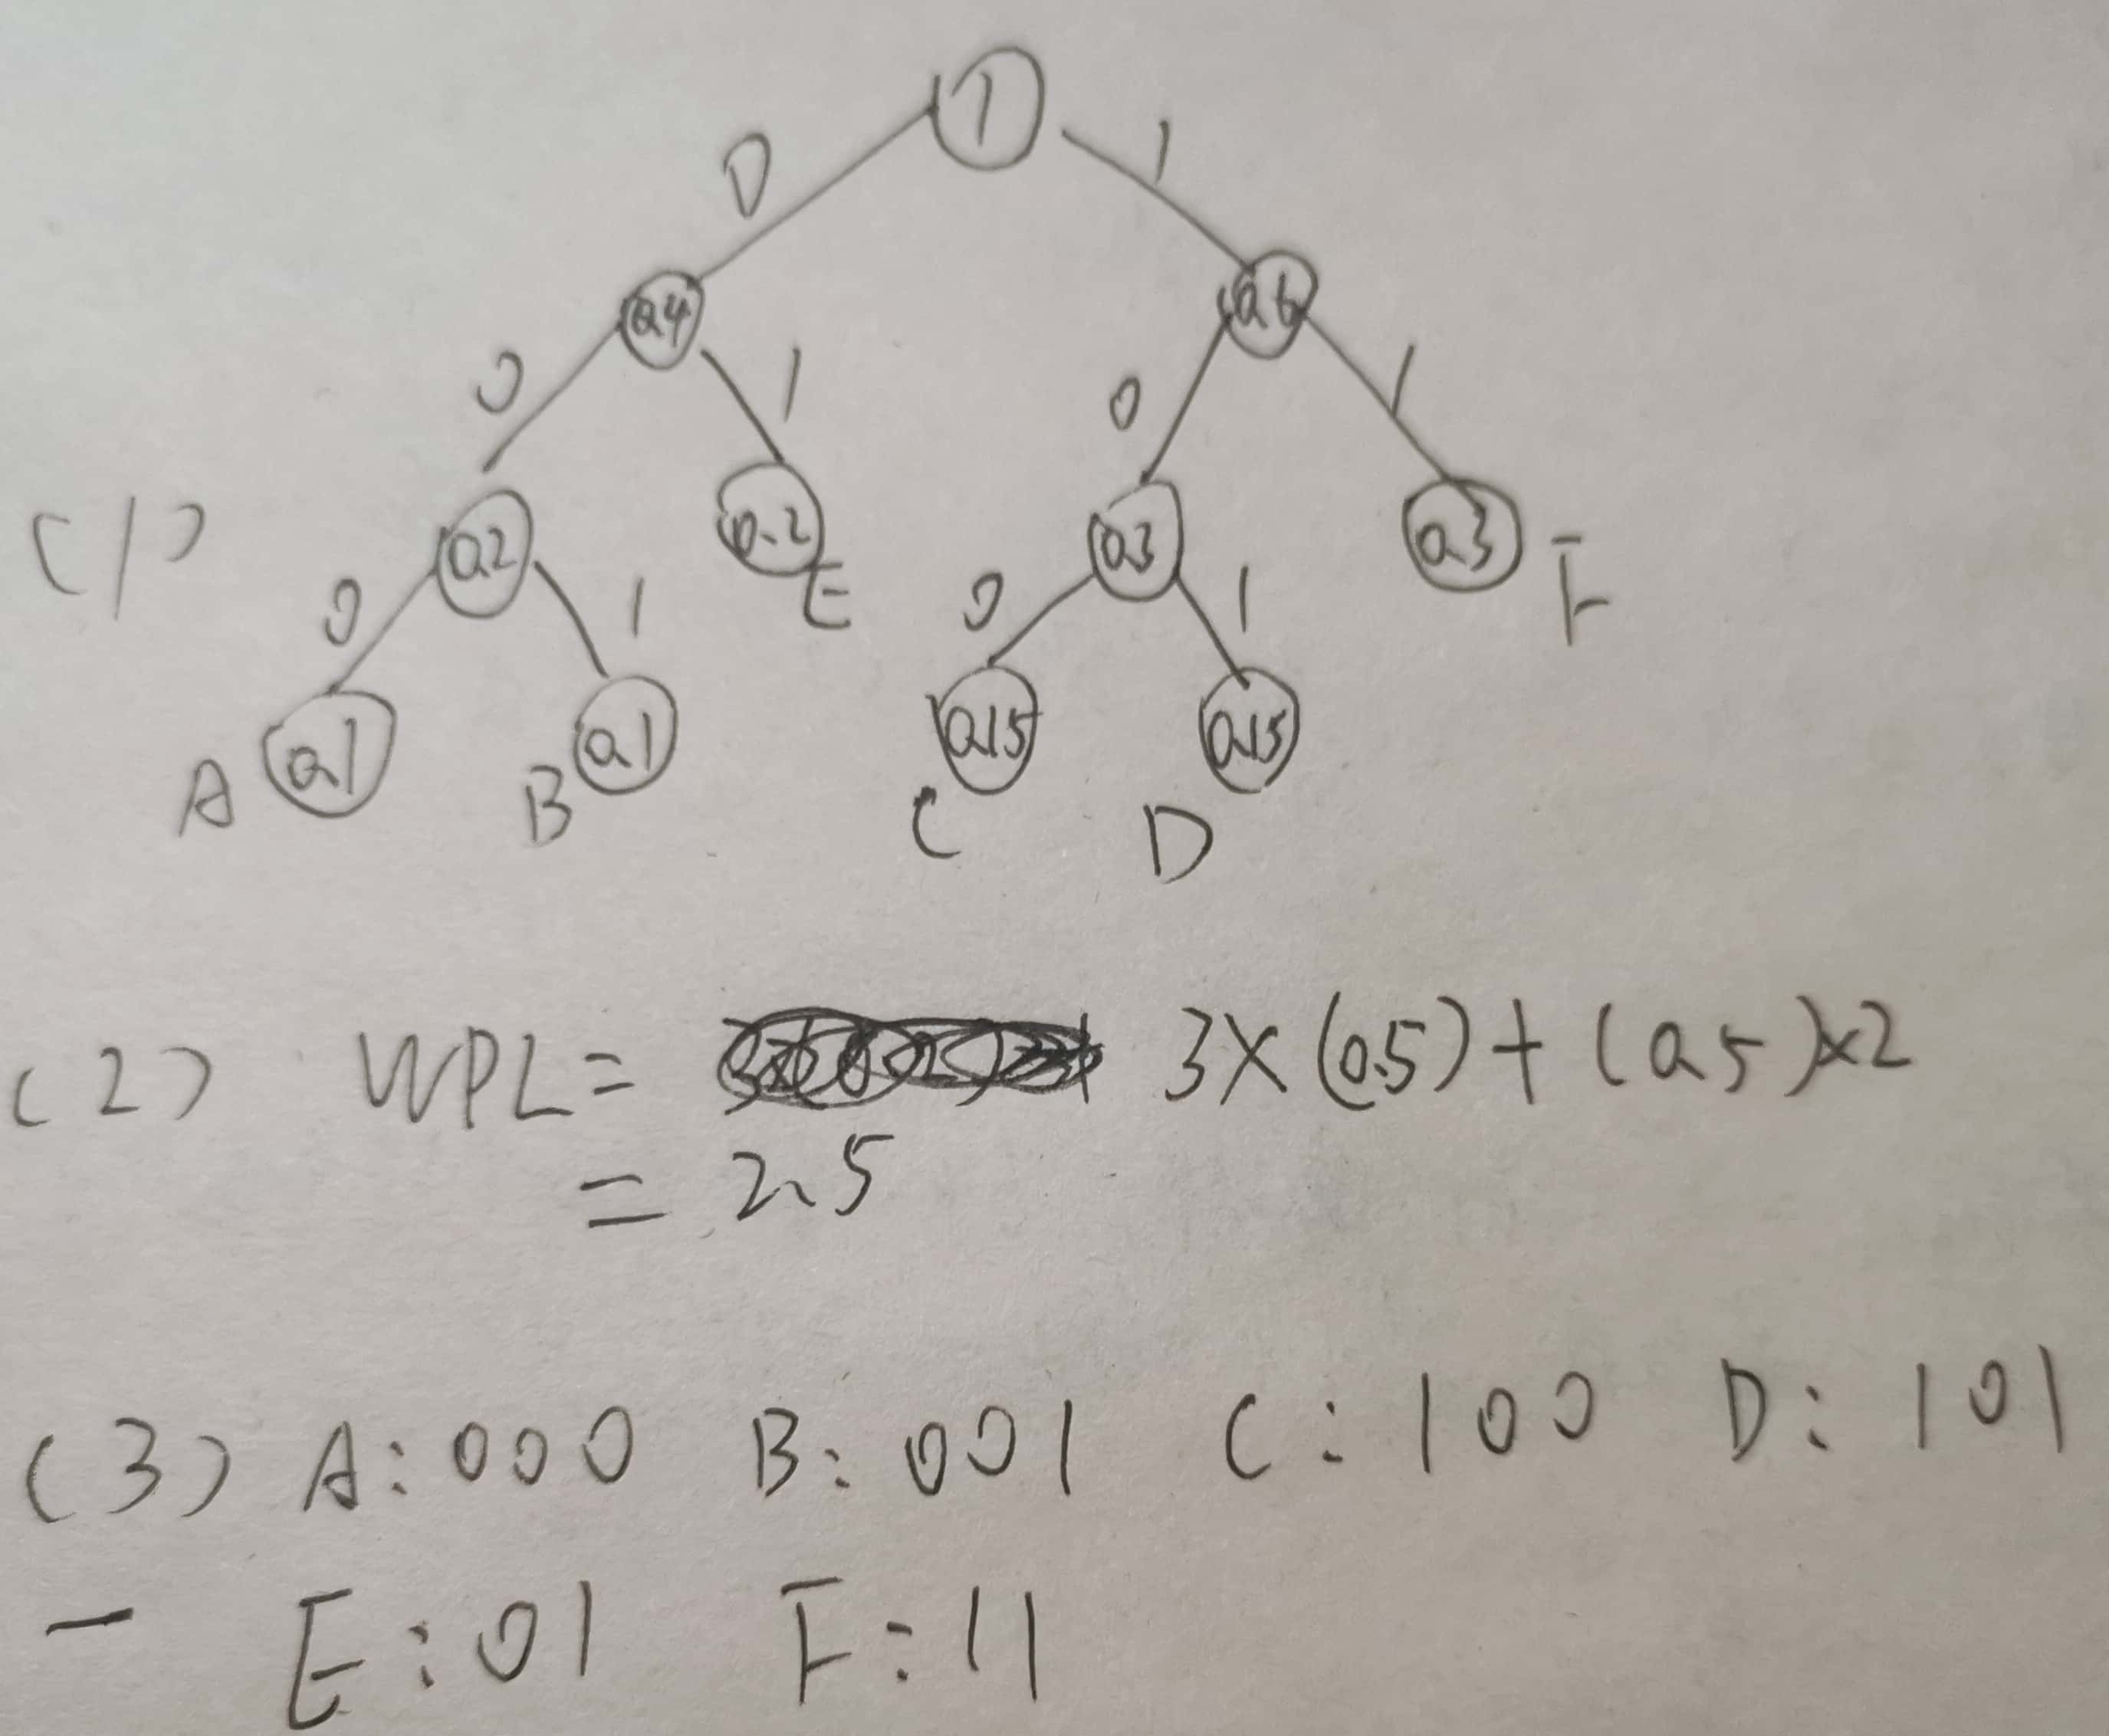 1
0 1
0.4 0.6
0 1 0 1
(1) 0.2 0.2 E 0.3 0.3 F
0 1 0 1
A 0.1 B 0.1 C 0.15 D 0.15
(2) WPL = 3×(0.5)+(0.5)×2
= 2.5
(3) A:000 B:001 C:100 D:101
E:01 F:11